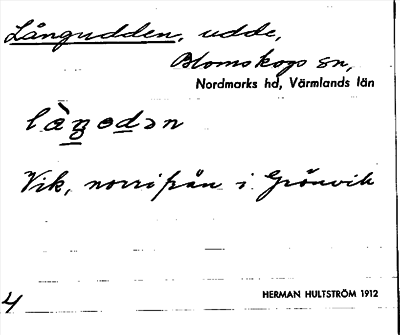 Långudden, udde,
Blomskogs sn,
Nordmarks hd, Värmlands län
Vik, norrifrån i Grönvik
HERMAN HULTSTRÖM 1912
4